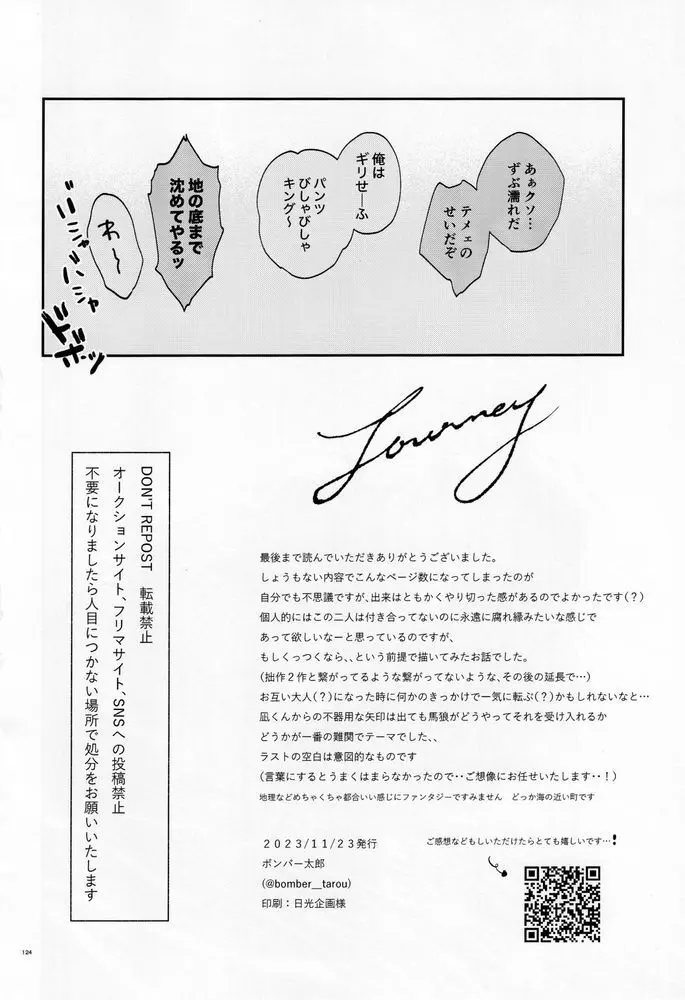 あぁクソ…
ずぶ濡れだ
テメェの
せいだぞ
俺は
ギリせーふ
パンツ
びしゃびしゃ
キング〜
地の底まで
沈めてやるッ
わ〜〜
バシャバシャ
ドボッ
Journey
最後まで読んでいただきありがとうございました。
しょうもない内容でこんなページ数になってしまったのが
自分でも不思議ですが、出来はともかくやり切った感があるのでよかったです(?)
個人的にはこの二人は付き合ってないのに永遠に腐れ縁みたいな感じで
あって欲しいなーと思っているのですが、
もしくっつくなら、、という前提で描いてみたお話でした。
(拙作2作と繋がってるような繋がってないような、その後の延長で…)
お互い大人(?)になった時に何かのきっかけで一気に転ぶ(?)かもしれないなと…
凪くんからの不器用な矢印は出ても馬狼がどうやってそれを受け入れるか
どうかが一番の難関でテーマでした、、
ラストの空白は意図的なものです
(言葉にするとうまくはまらなかったので‥ご想像にお任せいたします‥!)
地理などめちゃくちゃ都合いい感じにファンタジーですみません どっか海の近い町です
2023/11/23発行
ボンバー太郎
(@bomber__tarou)
印刷：日光企画様
ご感想などもしいただけたらとても嬉しいです…!
DON'T REPOST 転載禁止
オークションサイト、フリマサイト、SNSへの投稿禁止
不要になりましたら人目につかない場所で処分をお願いいたします
124